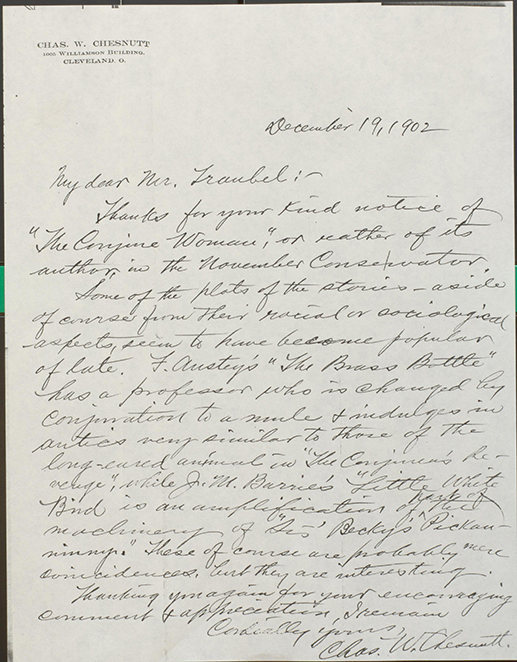 CHAS. W. CHESNUTT
1005 WILLIAMSON BUILDING.
CLEVELAND, O.
December 19, 1902
My dear Mr. Traubel:-
Thanks for your kind notice of
"The Conjure Woman", or rather of its
author, in the November Conservator.
Some of the plots of the stories - aside
of course from their racial or sociological
aspects, seem to have become popular
of late. F. Anstey's "The Brass Bottle"
has a professor who is changed by
conjuration to a mule & indulges in
antics very similar to those of the
long-eared animal in "The Conjurer's Re-
venge", while J. M. Barrie's "Little White
Bird is an amplification of the
part of
machinery of "Sis' Becky's Pickan-
ninny." These of course are probably mere
coincidences, but they are interesting.
Thanking you again for your encouraging
comment & appreciation, I remain
Cordially yours,
Chas. W. Chesnutt.